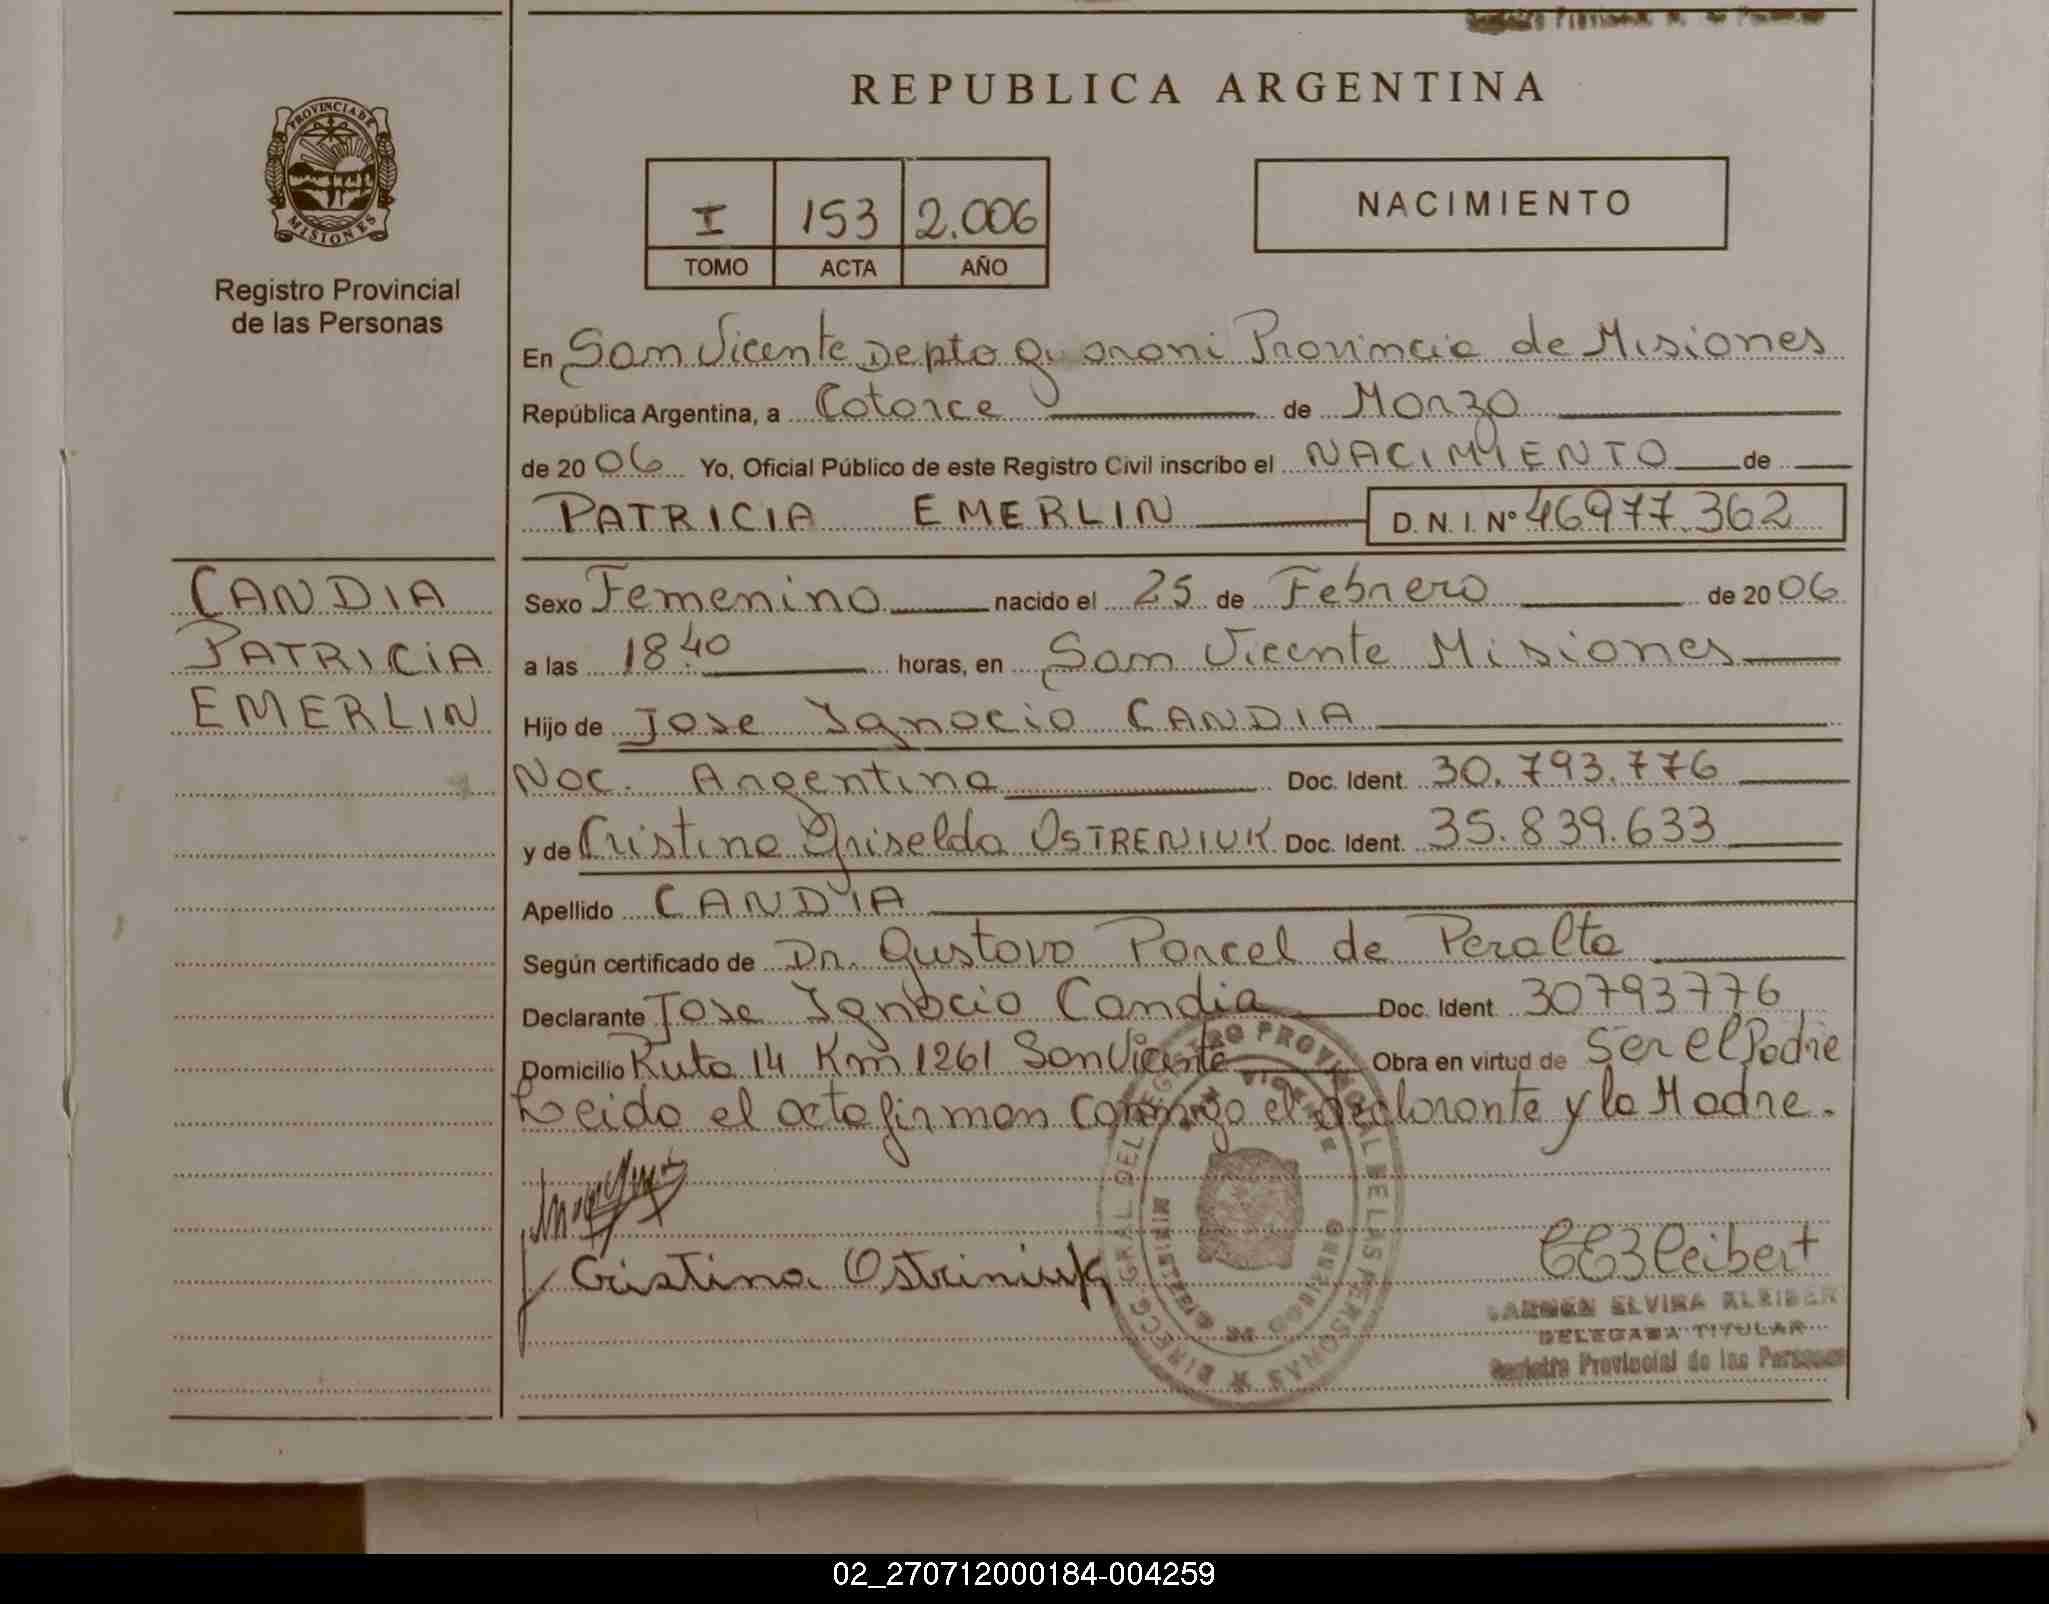 REPUBLICA ARGENTINA
PROVINCIA DE
MISIONES
Registro Provincial
de las Personas
I 153 2.006
TOMO ACTA AÑO
NACIMIENTO
En San Vicente Depto Guarani Provincia de Misiones
República Argentina, a Catorce de Marzo
de 20 06 Yo, Oficial Público de este Registro Civil inscribo el NACIMIENTO de
PATRICIA EMERLIN D.N.I. Nº 46977.362
CANDIA
PATRICIA
EMERLIN
Sexo Femenino nacido el 25 de Febrero de 20 06
a las 18.40 horas, en San Vicente Misiones
Hijo de Jose Ignacio CANDIA
Nac. Argentina Doc. Ident. 30.793.776
y de Cristina Griselda OSTRENIUK Doc. Ident. 35.839.633
Apellido CANDIA
Según certificado de Dr. Gustavo Porcel de Peralta
Declarante Jose Ignacio Candia Doc. Ident. 30793776
Domicilio Ruta 14 Km 1261 San Vicente Obra en virtud de Ser el Padre
Leido el acta firman conmigo el declarante y la Madre.
Cristina Ostriniuk
CARMEN ELVIRA KLEIBERT
DELEGADA TITULAR
Registro Provincial de las Personas
02_270712000184-004259